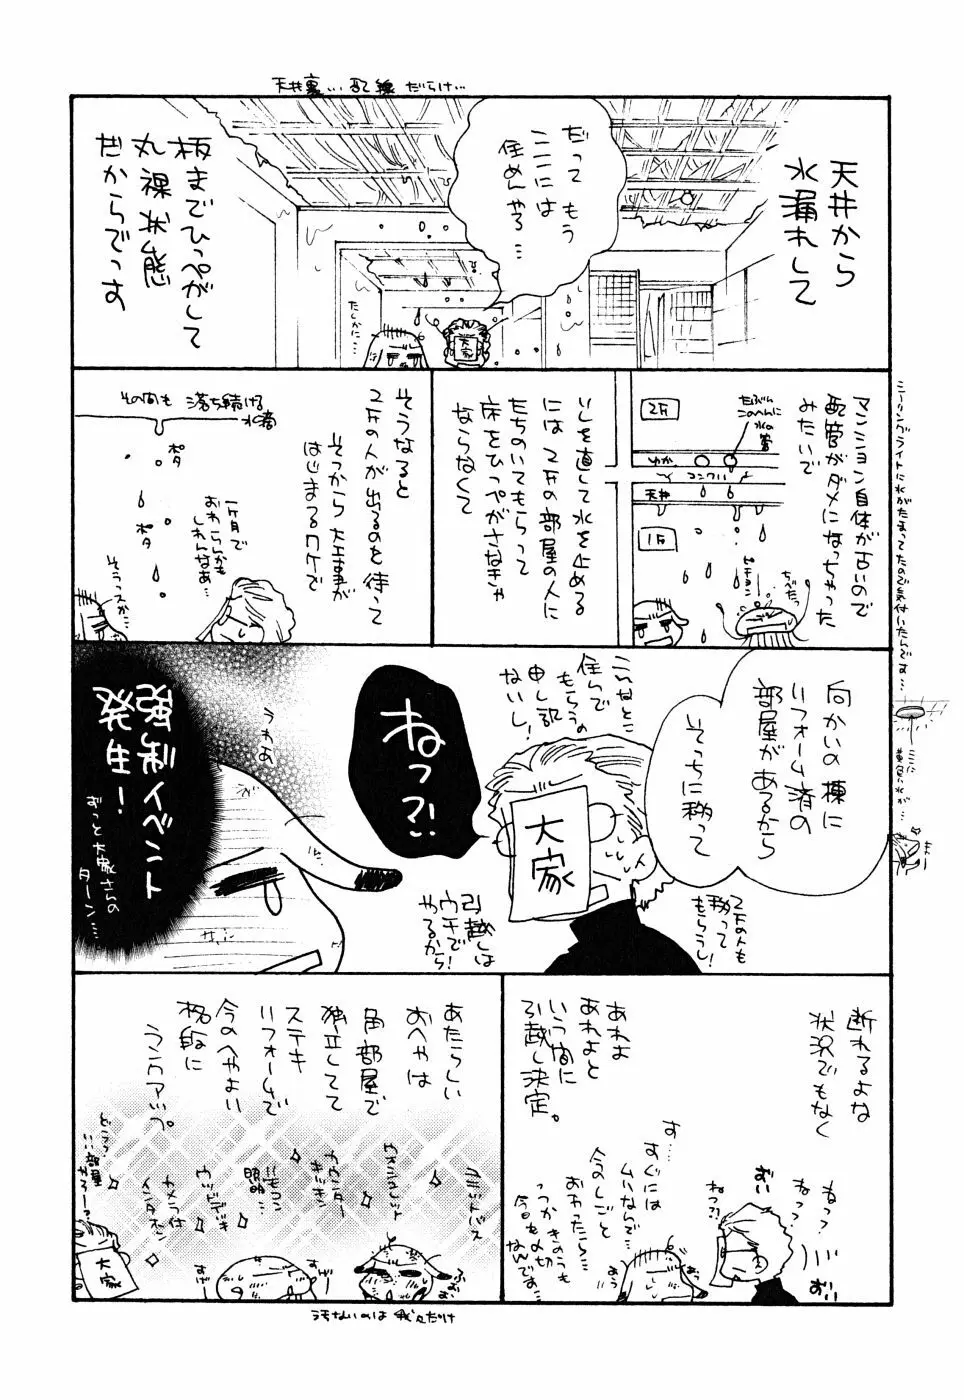 天井裏…配線だらけ…
天井から
水漏れして
だって もう
ここには
住めんやろ…
たしかに…
大家
板までひっぺがして
丸裸状態
だからでっす
シーリングライトに水がたまってたので気付いたんです…
ここに
黄色い水が…
マンション自体が古いので
配管がダメになっちゃった
みたいで
2F
たぶん
このへんに
水の管
ゆか
コンクリ
天井
1F
ピチョン
ちべたっ
いしを直して水を止める
には2Fの部屋の人に
たちのいてもらって
床をひっぺがさなきゃ
ならなくて
そうなると
2Fの人が出るのを待って
そっから大工事が
はじまるワケで
その間も落ち続ける
水滴
ポタ
ポタ
一ヶ月で
おわらんかも
しれんなあ…
そうっスか…
向かいの棟に
リフォーム済の
部屋があるから
そっちに移って
こんなとこ
住んで
もらうの
申し訳
ないし!
2Fの人も
移って
もらうし!
引越しは
ウチで
やるから!
大家
ねっ?!
うわあ
強制イベント
発生!
ずっと大家さんの
ターン…
断れるよな
状況でもなく
ねっ?
ねっ?
おい
ねっ?!
おい
す……
すぐには
ムリなんで…
今のしごと
おわったら…
つっかきのうも
今日も〆切
なんですよ…
あう
あれよ
あれよと
いう間に
引越し決定。
あたらしい
おへやは
角部屋で
独立してて
ステキ
リフォームで
今のへやよい
格段に
ランクアップ。
カウンター
キッチン
リモコン
照明
ウッドデッキ
カメラ付
インタホン
どうっ?
…部屋
やろー?
大家
すげー
うちないのは我々だけ